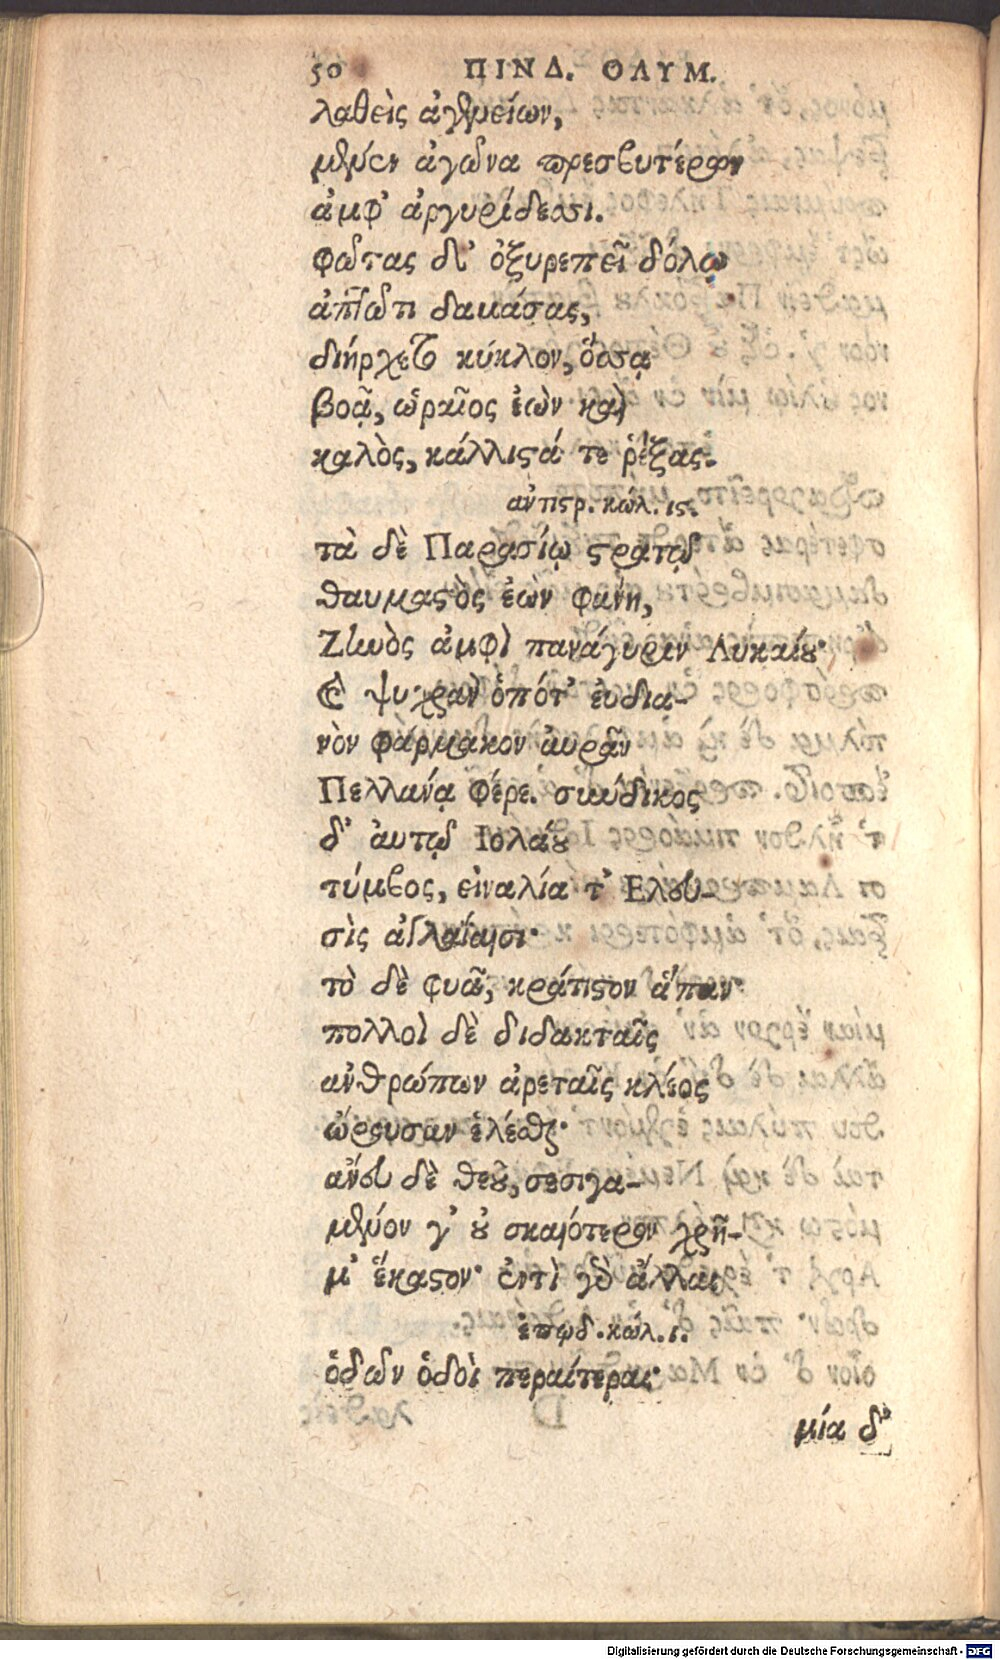 50 ΠΙΝΔ. ΟΛΥΜ.
λαθεὶς ἀγενείων,
μένεν ἀγῶνα πρεσβυτέρων
ἀμφ' ἀργυρίδεσσι.
φῶτας δ' ὀξυρεπεῖ δόλῳ
ἀπτῶτι δαμάσας,
διήρχετο κύκλον, ὅσσᾳ
βοᾷ, ὡραῖος ἐὼν καὶ
καλὸς, κάλλιστά τε ῥέξας.
ἀντιστρ. κώλ. ις.
τὰ δὲ Παρασίῳ στρατῷ
θαυμαστὸς ἐὼν φάνη,
Ζηνὸς ἀμφὶ πανάγυριν Λυκαίου·
καὶ ψυχρᾶν ὁπότ' ἐυδια-
νὸν φάρμακον ἀυρᾶν
Πελλάνᾳ φέρε. σύνδικος
δ' ἀυτῷ Ιολάου
τύμβος, εἰναλία τ' Ελευ-
σὶς ἀγλαΐαισι·
τὸ δὲ φυᾷ, κράτιστον ἅπαν·
πολλοὶ δὲ διδακταῖς
ἀνθρώπων ἀρεταῖς κλέος
ὤρουσαν ἑλέσθαι·
ἄνευ δὲ θεοῦ, σεσιγα-
μένον γ' οὐ σκαιότερον χρῆ-
μ' ἕκαστον· ἐντὶ γὰρ ἄλλαι
ἐπῳδ. κώλ. ι.
ὁδῶν ὁδοὶ περαίτεραι·
μία δ'
Digitalisierung gefördert durch die Deutsche Forschungsgemeinschaft - DFG